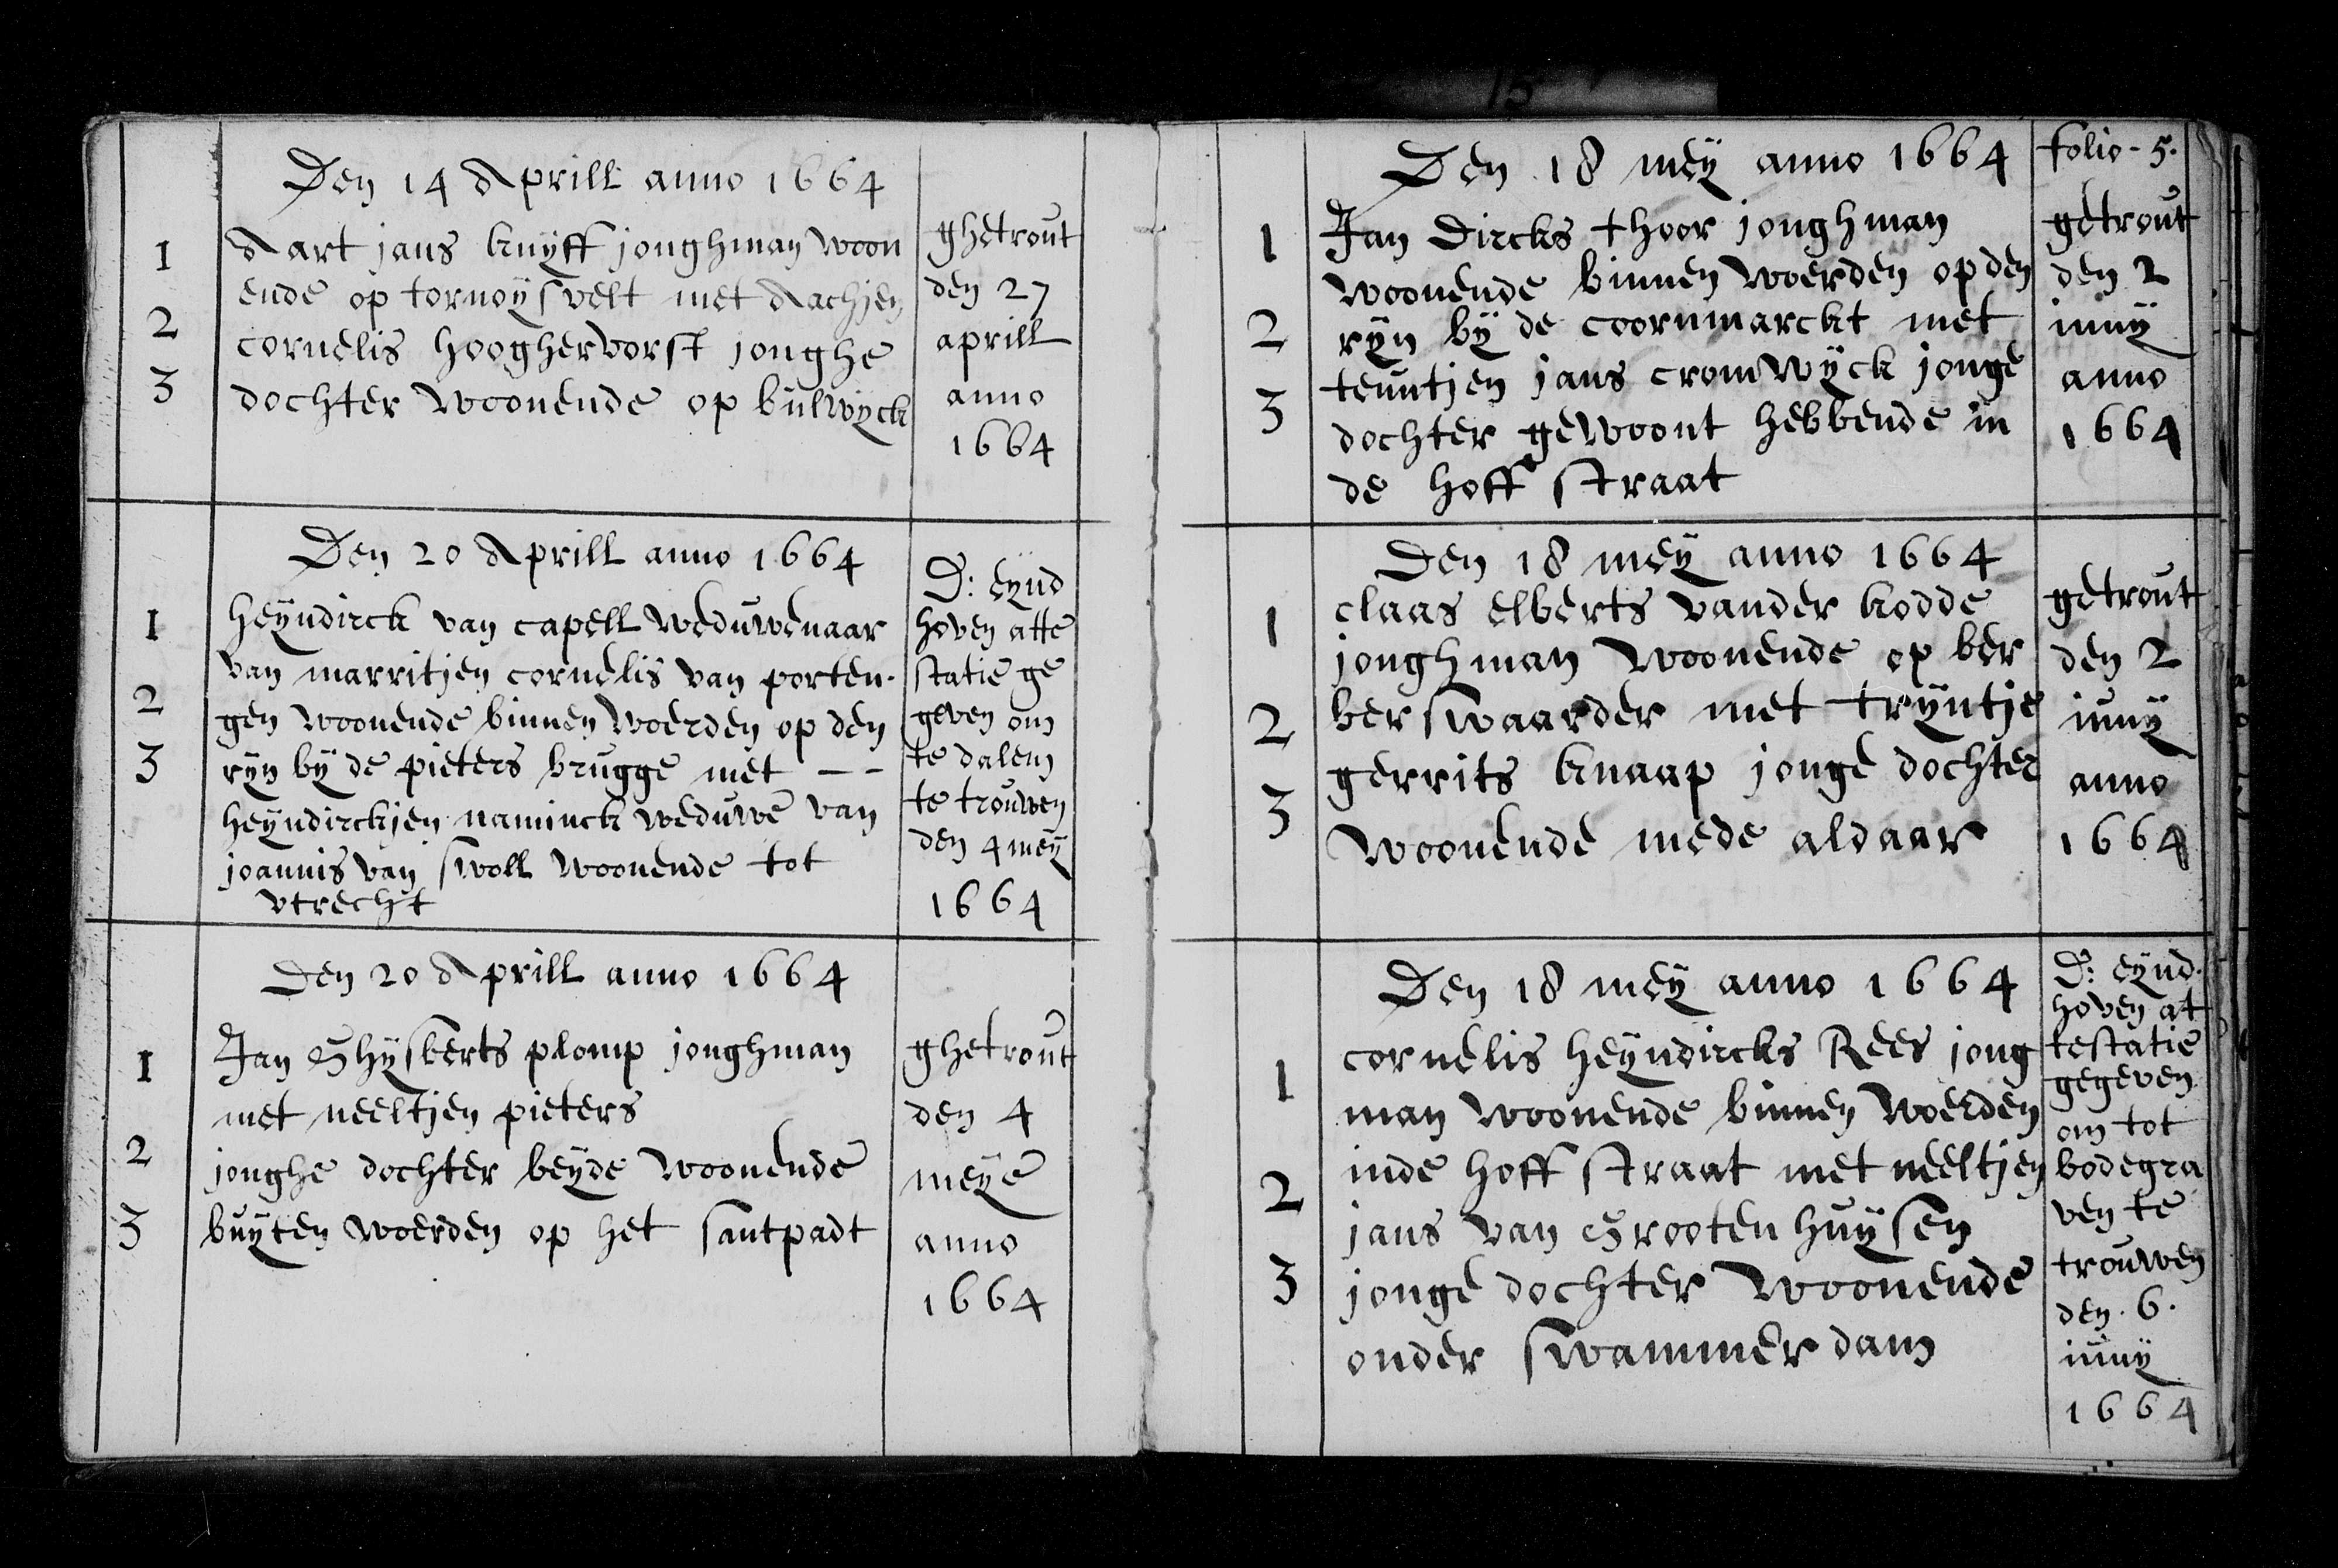 15
Den 14 Aprill anno 1664
1
2
3
Aart jans kuyff jonghman woon
ende op tornoysvelt met Aachjen
cornelis hooghervorst jonghe
dochter woonende op bulwyck
ghetrout
den 27
aprill
anno
1664
Den 20 Aprill anno 1664
1
2
3
heyndirck van capell weduwenaar
van marritjen cornelis van porten-
gen woonende binnen woerden op den
ryn by de pieters brugge met – –
heyndirckjen naminck weduwe van
joannis van swoll woonende tot
vtrecht
D: eynd
hoven atte
statie ge
geven om
te dalem
te trouwen
den 4 mey
1664
Den 20 Aprill anno 1664
1
2
3
Jan Ghysberts plomp jonghman
met neeltjen pieters
jonghe dochter beyde woonende
buyten woerden op het santpadt
ghetrout
den 4
meye
anno
1664
folio - 5.
Den 18 mey anno 1664
1
2
3
Jan Dircks thoor jonghman
woonende binnen woerden op den
ryn by de coornmarckt met
teuntjen jans cromwyck jonge
dochter gewoont hebbende in
de hoff straat
getrout
den 2
juny
anno
1664
Den 18 mey anno 1664
1
2
3
claas elberts vander kodde
jonghman woonende op ber
berswaarder met tryntje
gerrits knaap jonge dochter
woonende mede aldaar
getrout
den 2
iuny
anno
1664
Den 18 mey anno 1664
1
2
3
cornelis heyndircks Rees jong
man woonende binnen woerden
inde hoff straat met neeltjen
jans van Grootenhuysen
jonge dochter woonende
onder swammerdam
D: eynd-
hoven at
testatie
gegeven
om tot
bodegra
ven te
trouwen
den . 6 .
iuny
1664